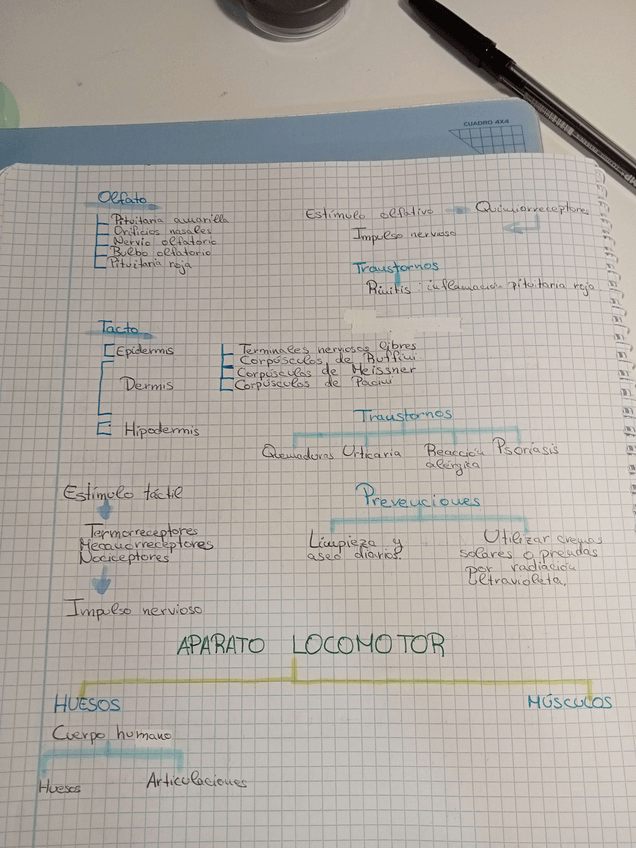 CUADRO 4X4
Olfato
Pituitaria amarilla
Orificios nasales
Nervio olfatorio
Bulbo olfatorio
Pituitaria roja
Estímulo olfativo
Quimiorreceptores
Impulso nervioso
Transtornos
Rinitis: inflamación pituitaria roja
Tacto
Epidermis
Dermis
Hipodermis
Terminales nerviosas libres
Corpúsculos de Ruffini
Corpúsculos de Meissner
Corpúsculos de Pacini
Transtornos
Quemaduras
Urticaria
Reacción
alérgica
Psoríasis
Estímulo táctil
Termorreceptores
Mecanorreceptores
Nociceptores
Impulso nervioso
Prevenciones
Limpieza y
aseo diarios.
Utilizar cremas
solares o prendas
por radiación
ultravioleta.
APARATO LOCOMOTOR
HUESOS
MÚSCULOS
Cuerpo humano
Huesos
Articulaciones